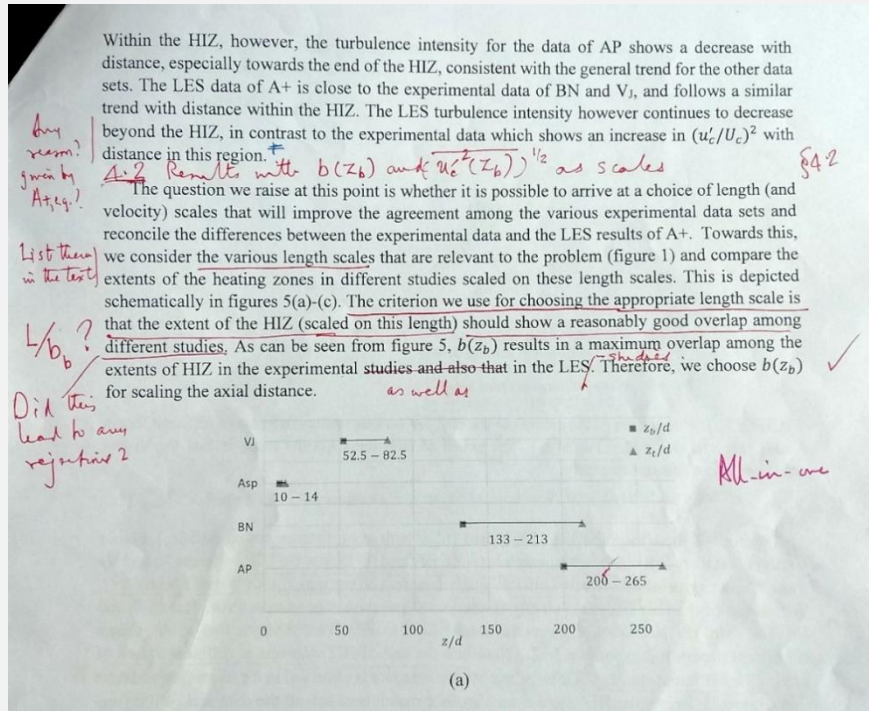 Within the HIZ, however, the turbulence intensity for the data of AP shows a decrease with
distance, especially towards the end of the HIZ, consistent with the general trend for the other data
sets. The LES data of A+ is close to the experimental data of BN and VJ, and follows a similar
trend with distance within the HIZ. The LES turbulence intensity however continues to decrease
beyond the HIZ, in contrast to the experimental data which shows an increase in (u′c/Uc)² with
distance in this region.
Any
reason?
given by
A+, eg.?
4.2 Results with b(zb) and (u′c²(zb))^1/2 as scales
§4.2
The question we raise at this point is whether it is possible to arrive at a choice of length (and
velocity) scales that will improve the agreement among the various experimental data sets and
reconcile the differences between the experimental data and the LES results of A+. Towards this,
we consider the various length scales that are relevant to the problem (figure 1) and compare the
extents of the heating zones in different studies scaled on these length scales. This is depicted
schematically in figures 5(a)-(c). The criterion we use for choosing the appropriate length scale is
that the extent of the HIZ (scaled on this length) should show a reasonably good overlap among
different studies. As can be seen from figure 5, b(zb) results in a maximum overlap among the
extents of HIZ in the experimental studies and also that in the LES. Therefore, we choose b(zb)
for scaling the axial distance.
List them
in the text
L/bb ?
Did this
lead to any
rejections?
studies
as well as
■ zb/d
▲ zt/d
All-in-one
VJ
52.5 – 82.5
Asp
10 – 14
BN
133 – 213
AP
200 – 265
0 50 100 150 200 250
z/d
(a)